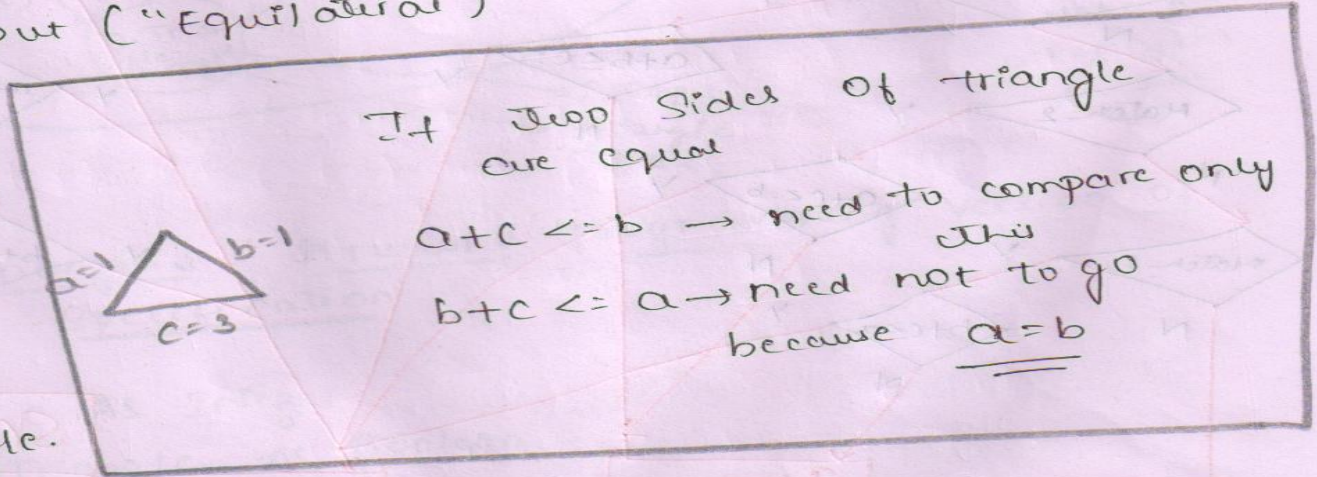 out ("Equilateral")
If two sides of triangle
are equal
a+c <= b → need to compare only
this
b+c <= a → need not to go
because a=b
a=1
b=1
c=3